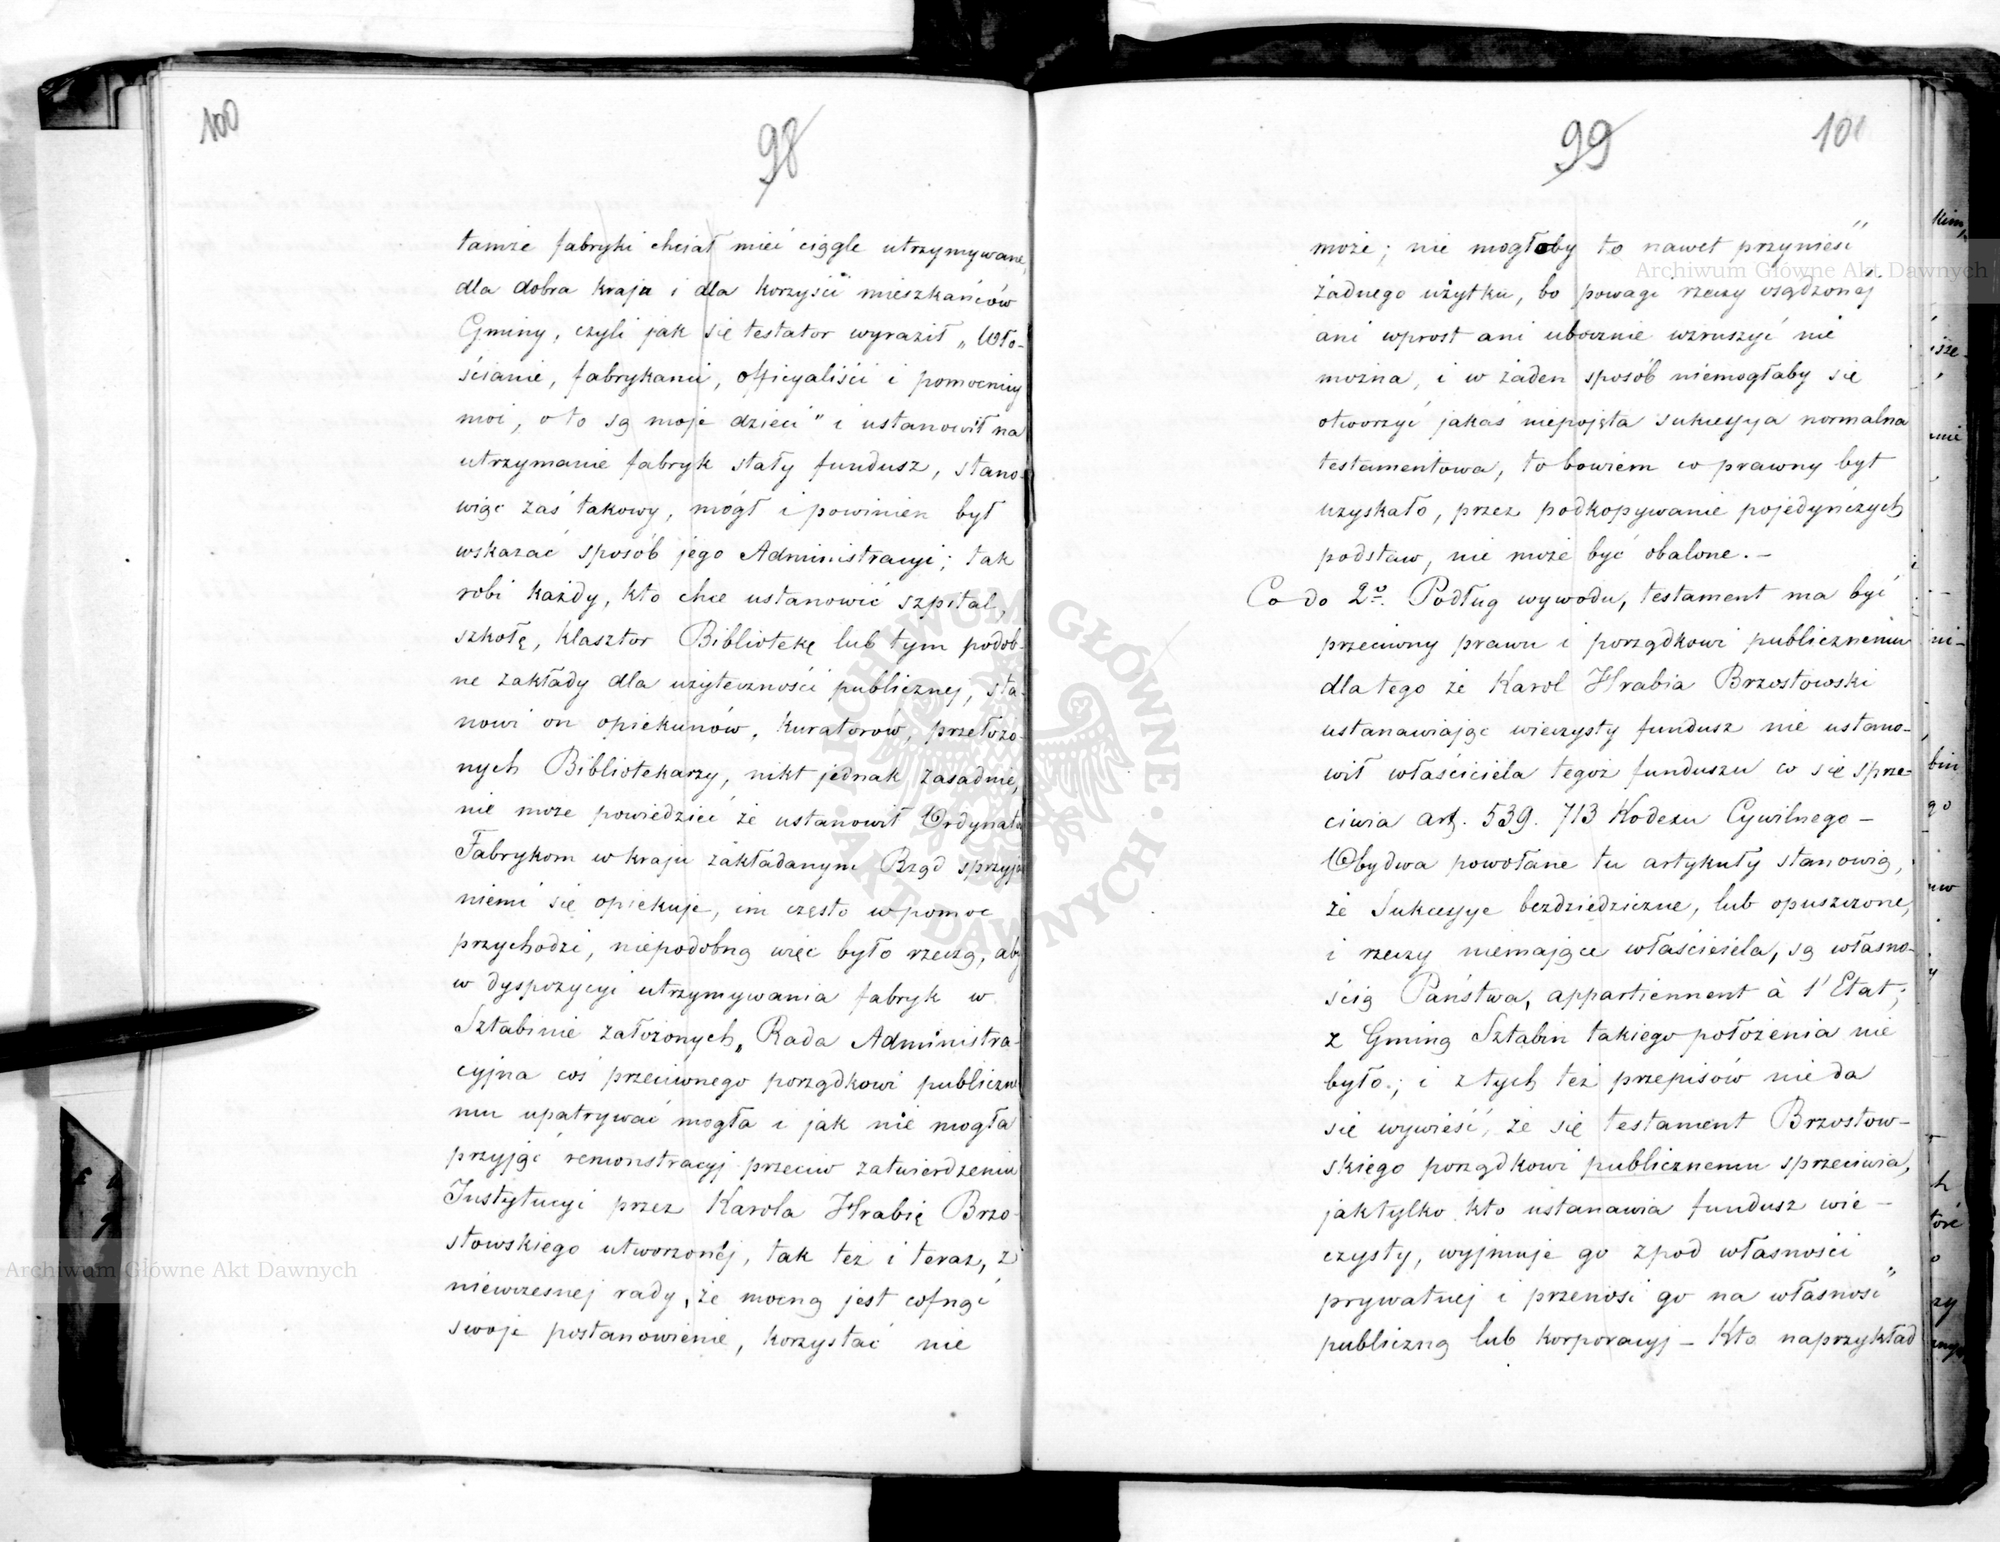 100
98
tamże fabryki chciał mieć ciągle utrzymywane,
dla dobra kraju i dla korzyści mieszkańców
Gminy, czyli jak się testator wyraził „Wło-
ścianie, fabrykanci, officyaliści i pomocnicy
moi, oto są moje dzieci" i ustanowił na
utrzymanie fabryk stały fundusz, stano-
wiąc zaś takowy, mógł i powinien był
wskazać sposób jego Administracyi; tak
robi każdy, kto chce ustanowić szpital,
szkołę, klasztor Bibliotekę lub tym podob-
ne zakłady dla użyteczności publicznej, sta-
nowi on opiekunów, kuratorów, przełożo-
nych Bibliotekarzy, nikt jednak zasadnie,
nie może powiedzieć że ustanowił Ordynata
Fabrykom w kraju zakładanym Rząd sprzyja
niemi się opiekuje, im często w pomoc
przychodzi, niepodobną więc było rzeczą, aby
w dyspozycyi utrzymywania fabryk w
Sztabinie założonych, Rada Administra-
cyjna coś przeciwnego porządkowi publiczne
mu upatrywać mogła i jak nie mogła
przyjąć remonstracyj przeciw zatwierdzeniu
Instytucyi przez Karola Hrabię Brzo-
stowskiego utworzonéj, tak też i teraz, z
niewczesnej rady, że mocną jest cofnąć
swoje postanowienie, korzystać nie
99
101
może; nie mogłoby to nawet przynieść
żadnego użytku, bo powagi rzeczy osądzonej
ani wprost ani ubocznie wzruszyć nie
można, i w żaden sposób niemogłaby się
otworzyć jakaś niepojęta sukcessya normalna
testamentowa, to bowiem co prawny byt
uzyskało, przez podkopywanie pojedyńczych
podstaw, nie może być obalone. –
Co do 2º. Podług wywodu, testament ma być
przeciwny prawu i porządkowi publicznemu
dla tego że Karol Hrabia Brzostowski
ustanawiając wieczysty fundusz nie ustano-
wił właściciela tegoż funduszu co się sprze-
ciwia art. 539. 713 Kodexu Cywilnego –
Obydwa powołane tu artykuły stanowią,
że Sukcessye bezdziedziczne, lub opuszczone,
i rzeczy niemające właściciela, są własno-
ścią Państwa, appartiennent à l'Etat;
z Gminą Sztabin takiego położenia nie
było; i z tych też przepisów nie da
się wywieść, że się testament Brzostow-
skiego porządkowi publicznemu sprzeciwia,
jak tylko kto ustanawia fundusz wie-
czysty, wyjmuje go z pod własności
prywatnej i przenosi go na własność
publiczną lub korporacyj – Kto naprzykład
Archiwum Główne Akt Dawnych
Archiwum Główne Akt Dawnych
ARCHIWUM GŁÓWNE AKT DAWNYCH